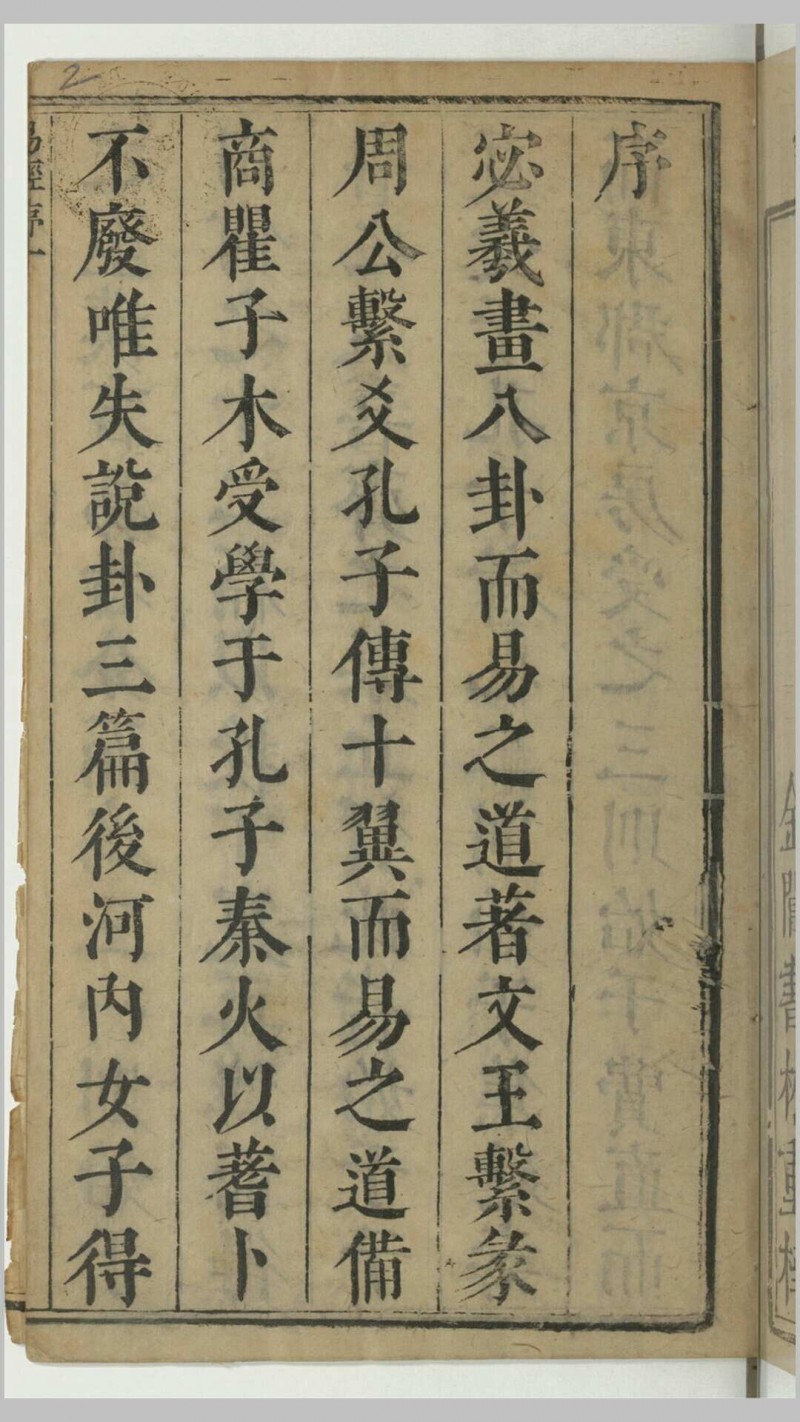 序
宓羲畫八卦而易之道著文王繫彖
周公繫爻孔子傳十翼而易之道備
商瞿子木受學于孔子秦火以蓍卜
不廢唯失說卦三篇後河內女子得
易經序一
2